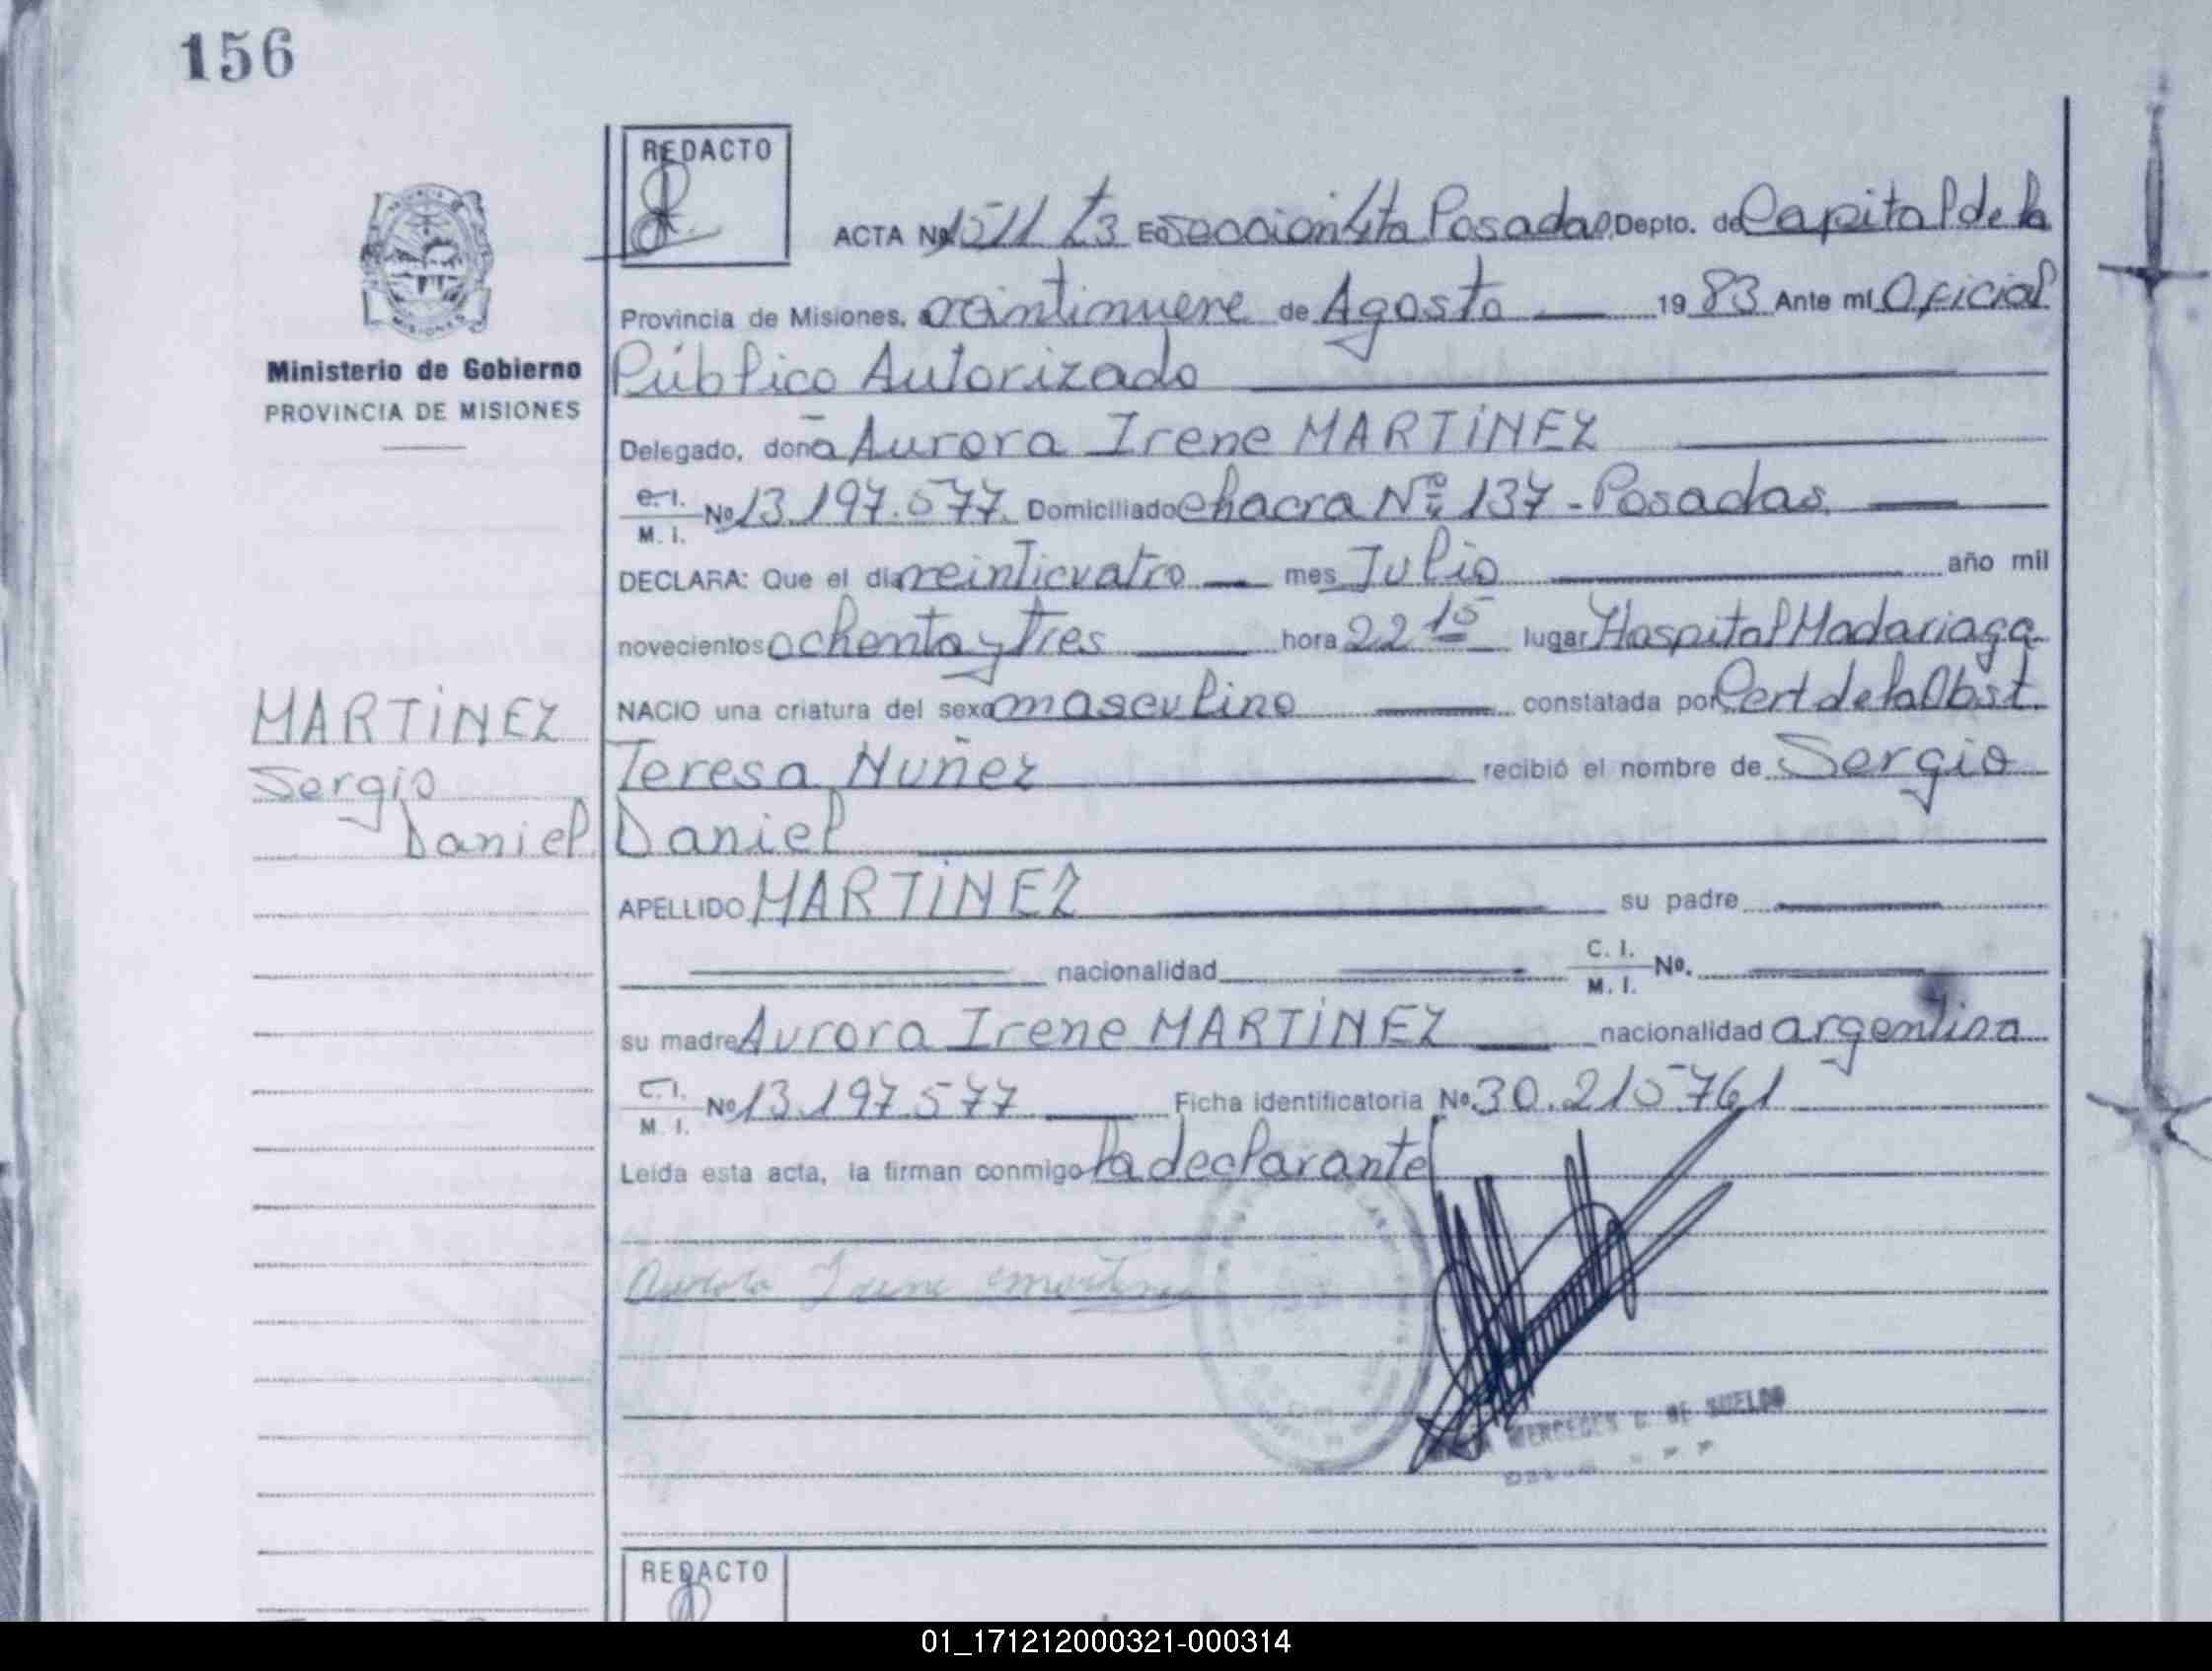 156
REDACTO
ACTA Nº 1511 T3 En Sección 4ta Posadas Depto. de Capital de la
Provincia de Misiones, a veintinueve de Agosto 1983 Ante mí Oficial
Público Autorizado
Ministerio de Gobierno
PROVINCIA DE MISIONES
Delegado, doña Aurora Irene MARTINEZ
C.I. M.I. Nº 13.197.577 Domiciliado chacra Nº 137 - Posadas
DECLARA: Que el día veinticuatro mes Julio año mil
novecientos ochenta y tres hora 22 15 lugar Hospital Madariaga
NACIO una criatura del sexo masculino constatada por Cert de la Obst.
MARTINEZ
Teresa Nuñez recibió el nombre de Sergio
Sergio
Daniel
Daniel
APELLIDO MARTINEZ su padre
nacionalidad C. I. M. I. Nº.
su madre Aurora Irene MARTINEZ nacionalidad argentina
C.I. M. I. Nº 13.197.577 Ficha identificatoria Nº 30.215.761
Leída esta acta, la firman conmigo la declarante
Aurora Irene Martinez
MERCEDES C. DE SUELDO
REDACTO
01_171212000321-000314